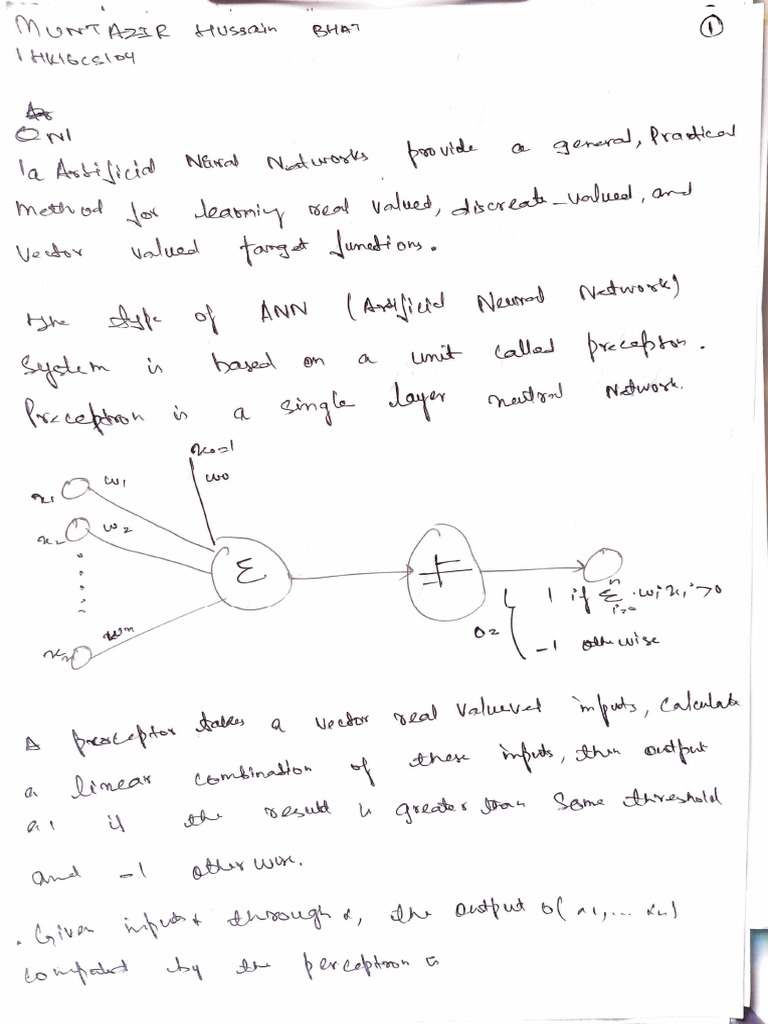 MUNTAZIR Hussain BHAT
①
1HK16CS104
QN1
1a Artificial Neural Networks provide a general, Practical
Method for learning real valued, discreate-valued, and
Vector valued target functions.
the type of ANN (Artificial Neural Network)
System is based on a unit called preceptron.
Preceptron is a single layer neutral Network.
x0=1
w0
x1 w1
x2 w2
xn wn
Σ
1 if Σ wixi > 0
n
i=0
o=
-1 otherwise
A preceptor takes a vector real valued inputs, Calculate
a linear combination of these inputs, then output
a 1 if the result is greater than some threshold
and -1 otherwise.
. Given inputs through, the output o(x1,... xn)
computed by the perceptron is